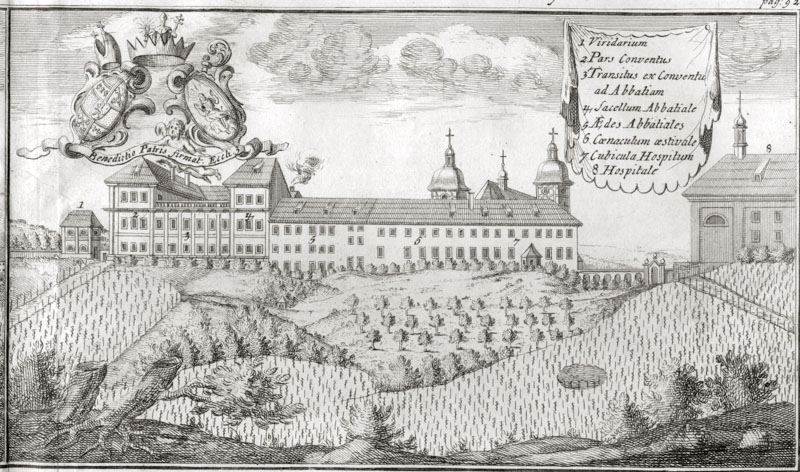 pag. 92
Benedictio Patris firmat. Eccli.
1 Viridarium
2 Pars Conventus
3 Transitus ex Conventu
ad Abbatiam
4 Sacellum Abbatiale
5 Ædes Abbatiales
6 Cœnaculum æstivale
7 Cubicula Hospitum
8 Hospitale
1
2
3
4
5
6
7
8